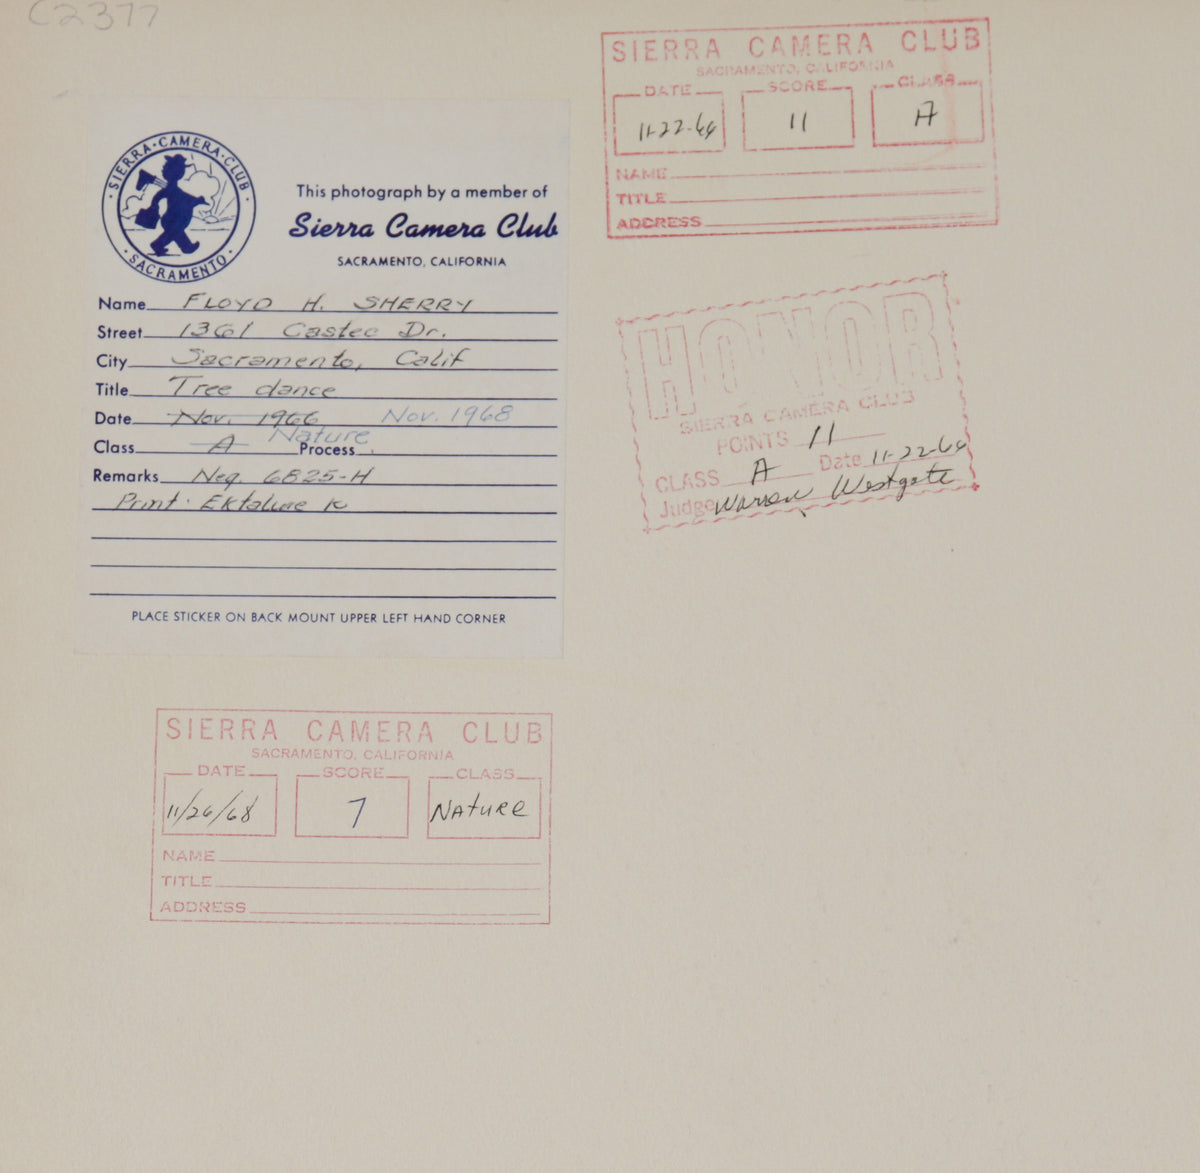 C2377
SIERRA·CAMERA·CLUB
·SACRAMENTO·
This photograph by a member of
Sierra Camera Club
SACRAMENTO, CALIFORNIA
Name FLOYD H. SHERRY
Street 1361 Castec Dr.
City Sacramento, Calif
Title Tree dance
Date Nov. 1966 Nov. 1968
Class A Nature Process
Remarks Neg. 6B25-H
Print: Ektalure K
PLACE STICKER ON BACK MOUNT UPPER LEFT HAND CORNER
SIERRA CAMERA CLUB
SACRAMENTO, CALIFORNIA
DATE SCORE CLASS
11-22-66 11 A
NAME
TITLE
ADDRESS
HONOR
SIERRA CAMERA CLUB
POINTS 11
CLASS A Date 11-22-66
Judge Warren Westgate
SIERRA CAMERA CLUB
SACRAMENTO, CALIFORNIA
DATE SCORE CLASS
11/26/68 7 NATURE
NAME
TITLE
ADDRESS